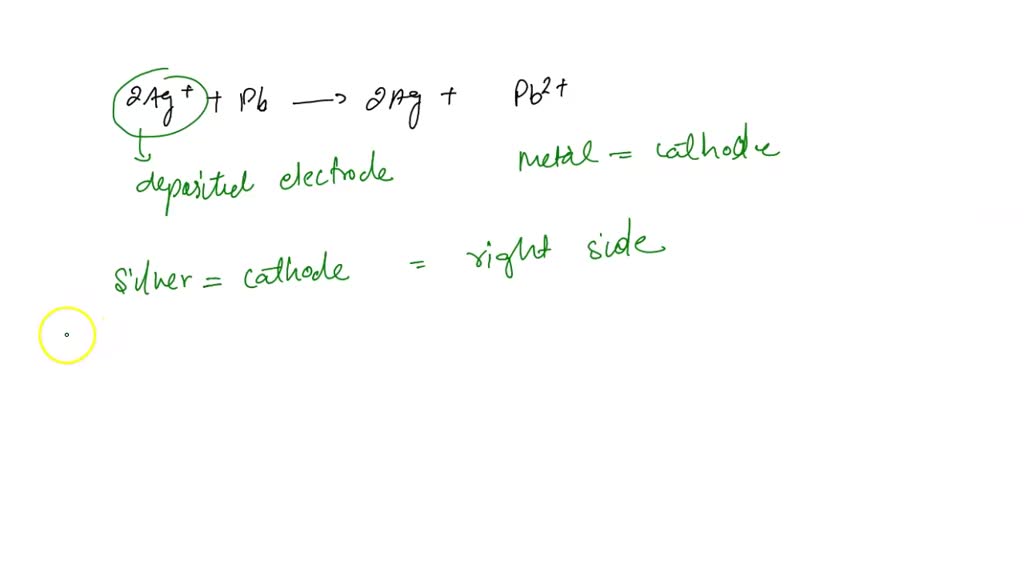 2Ag⁺ + Pb → 2Ag + Pb²⁺
deposited electrode
metal = cathode
Silver = cathode = right side